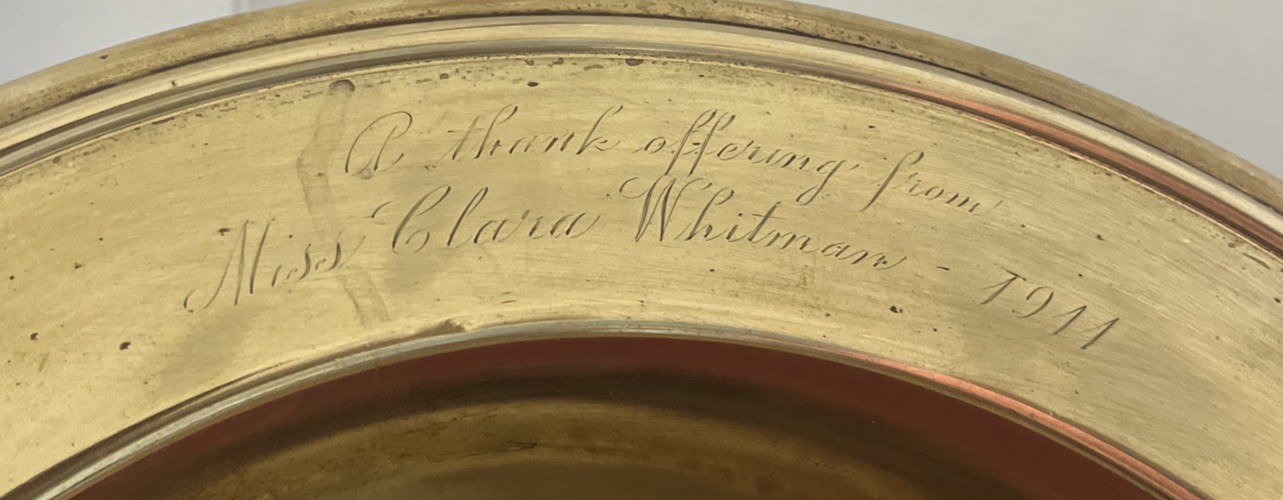 A thank offering from
Miss Clara Whitman - 1911